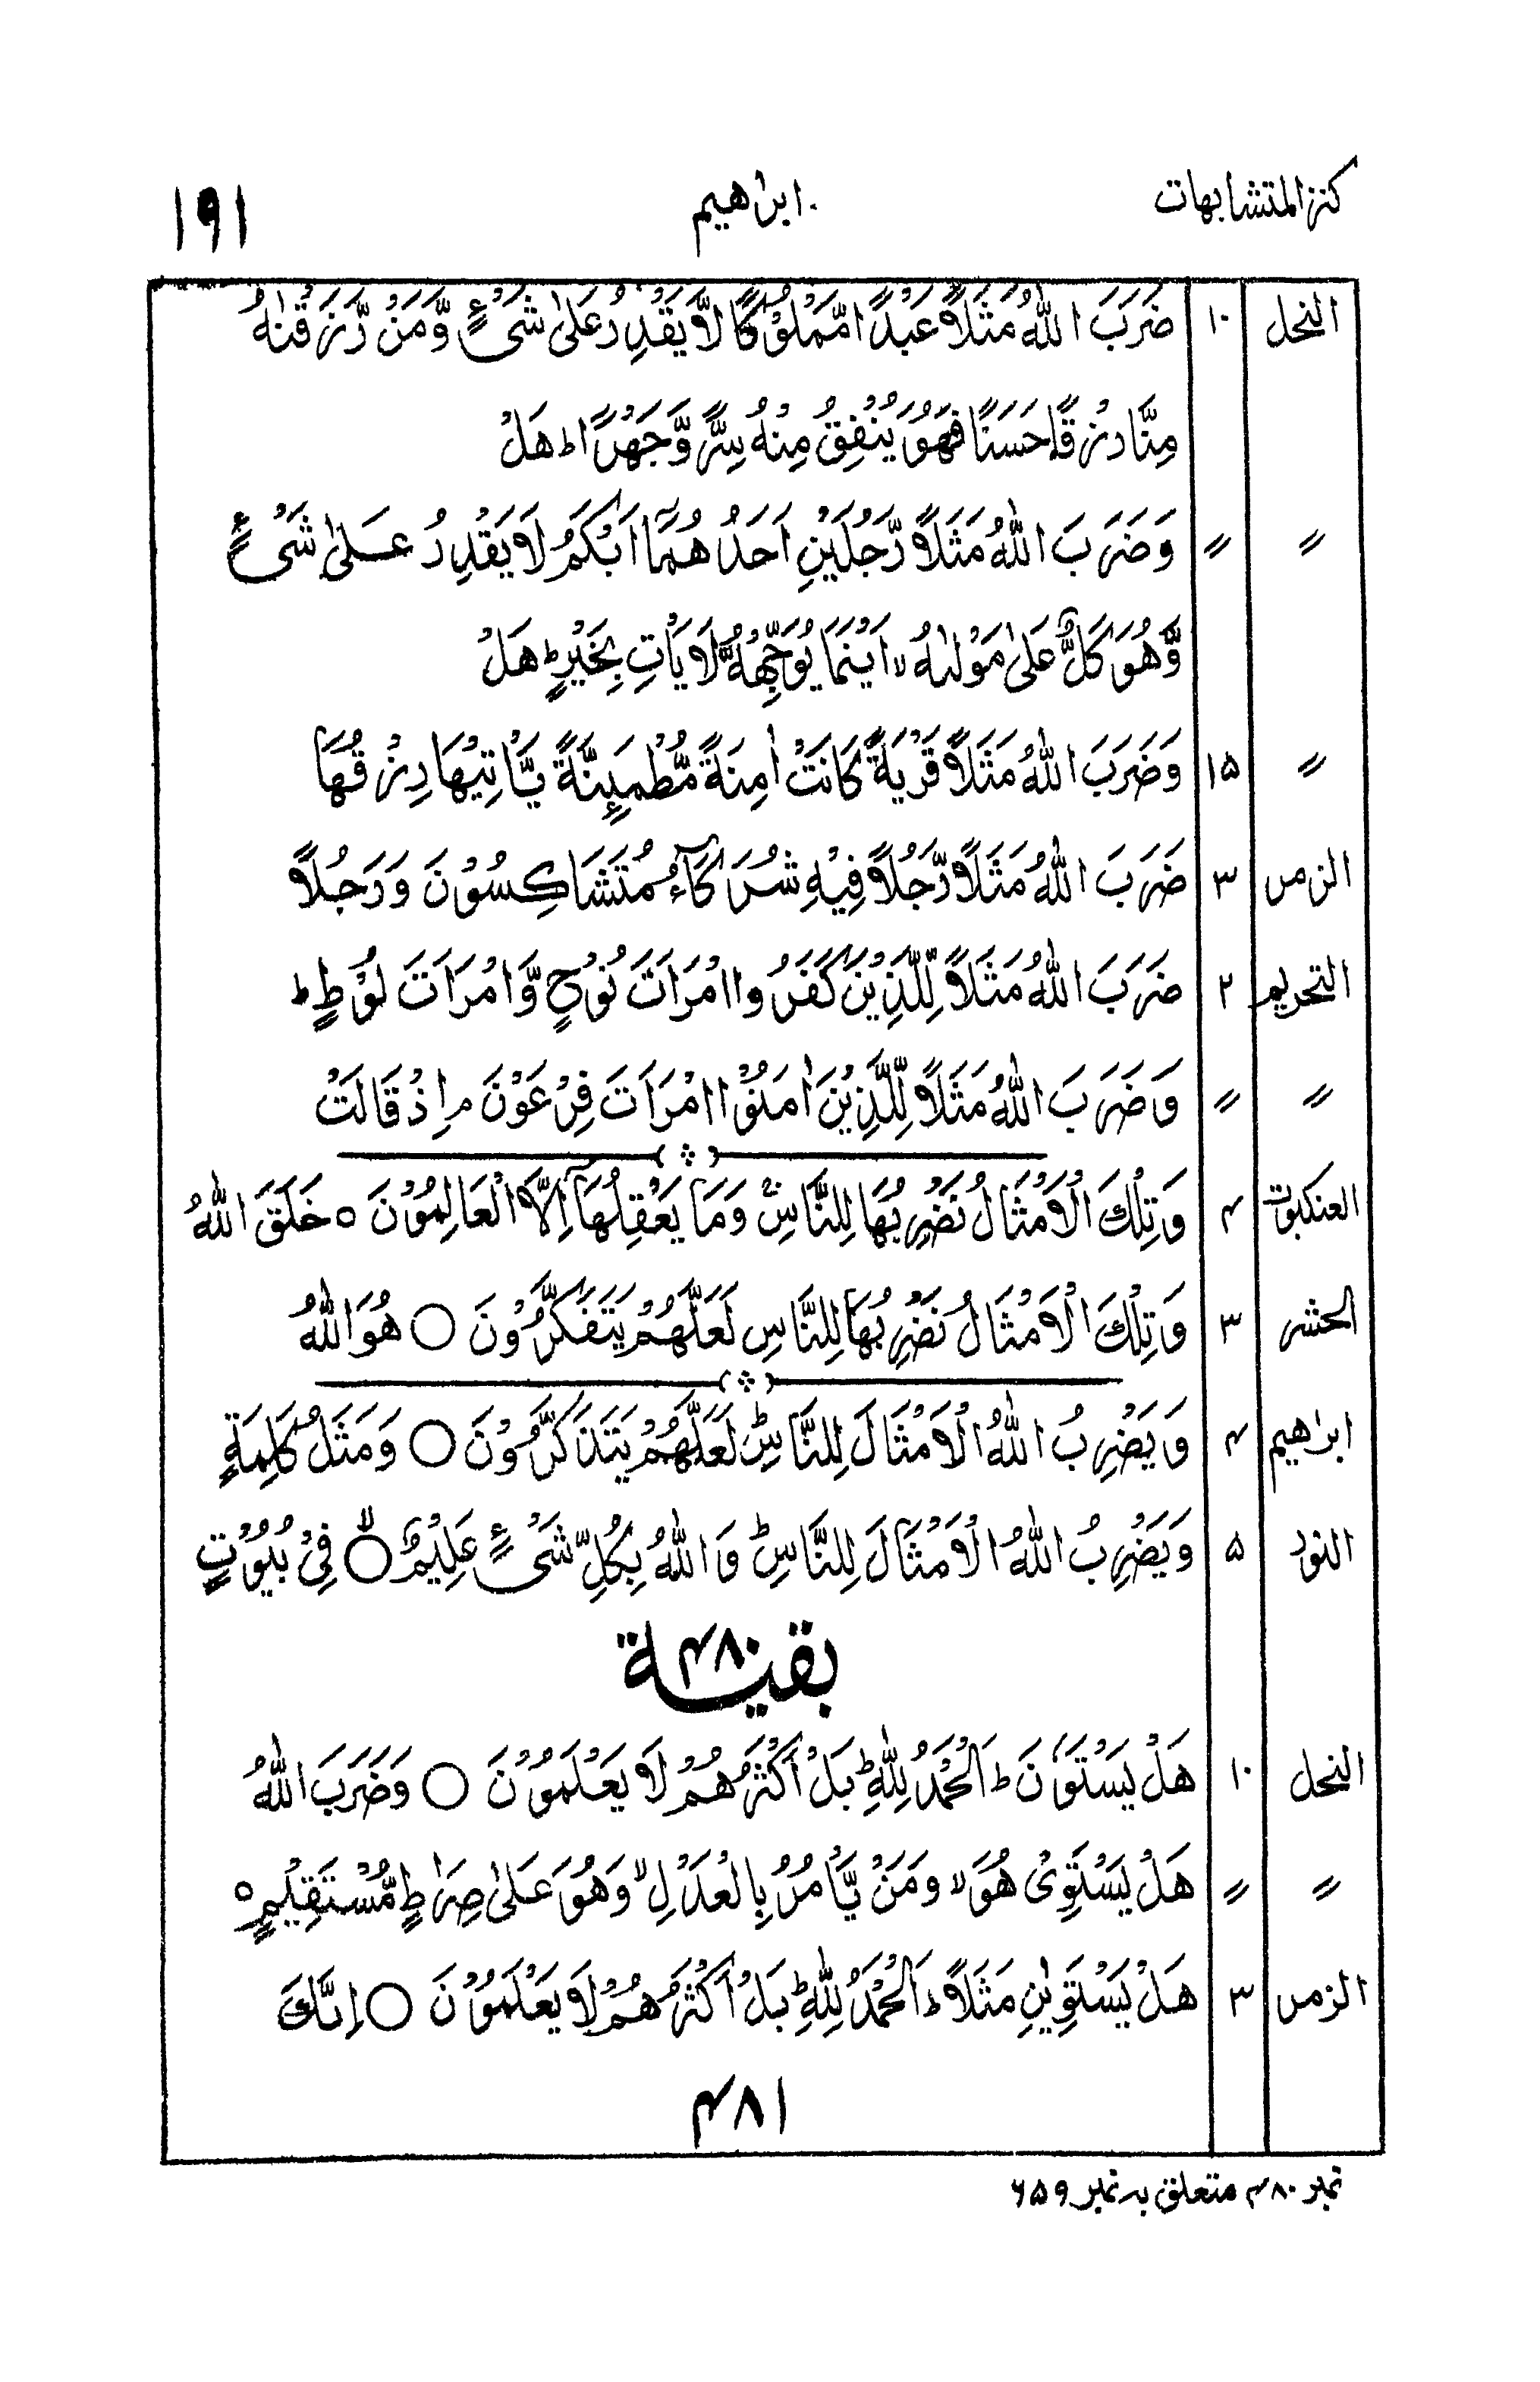 كنز المتشابهات ابرٰهيم ١٩١
النحل ١٠ ضَرَبَ اللّٰهُ مَثَلًا عَبْدًا مَّمْلُوْكًا لَّا يَقْدِرُ عَلٰى شَىْءٍ وَّمَنْ رَّزَقْنٰهُ
مِنَّا رِزْقًا حَسَنًا فَهُوَ يُنْفِقُ مِنْهُ سِرًّا وَّجَهْرًا ؕ هَلْ
〃 〃 وَضَرَبَ اللّٰهُ مَثَلًا رَّجُلَيْنِ اَحَدُهُمَآ اَبْكَمُ لَا يَقْدِرُ عَلٰى شَىْءٍ
وَّهُوَ كَلٌّ عَلٰى مَوْلٰىهُ ۙ اَيْنَمَا يُوَجِّهْهُّ لَا يَاْتِ بِخَيْرٍ ؕ هَلْ
〃 ١٥ وَضَرَبَ اللّٰهُ مَثَلًا قَرْيَةً كَانَتْ اٰمِنَةً مُّطْمَئِنَّةً يَّاْتِيْهَا رِزْقُهَا
الزمر ٣ ضَرَبَ اللّٰهُ مَثَلًا رَّجُلًا فِيْهِ شُرَكَآءُ مُتَشَاكِسُوْنَ وَرَجُلًا
التحريم ٢ ضَرَبَ اللّٰهُ مَثَلًا لِّلَّذِيْنَ كَفَرُوا امْرَاَتَ نُوْحٍ وَّامْرَاَتَ لُوْطٍ ؕ
〃 〃 وَضَرَبَ اللّٰهُ مَثَلًا لِّلَّذِيْنَ اٰمَنُوا امْرَاَتَ فِرْعَوْنَ ۘ اِذْ قَالَتْ
العنكبوت ۴ وَتِلْكَ الْاَمْثَالُ نَضْرِبُهَا لِلنَّاسِ ۚ وَمَا يَعْقِلُهَآ اِلَّا الْعَالِمُوْنَ ○ خَلَقَ اللّٰهُ
الحشر ٣ وَتِلْكَ الْاَمْثَالُ نَضْرِبُهَا لِلنَّاسِ لَعَلَّهُمْ يَتَفَكَّرُوْنَ ○ هُوَ اللّٰهُ
ابرٰهيم ۴ وَيَضْرِبُ اللّٰهُ الْاَمْثَالَ لِلنَّاسِ لَعَلَّهُمْ يَتَذَكَّرُوْنَ ○ وَمَثَلُ كَلِمَةٍ
النور ۵ وَيَضْرِبُ اللّٰهُ الْاَمْثَالَ لِلنَّاسِ ؕ وَاللّٰهُ بِكُلِّ شَىْءٍ عَلِيْمٌ ○ۙ فِىْ بُيُوْتٍ
بقية ۴٨٠
النحل ١٠ هَلْ يَسْتَوٗنَ ؕ اَلْحَمْدُ لِلّٰهِ ؕ بَلْ اَكْثَرُهُمْ لَا يَعْلَمُوْنَ ○ وَضَرَبَ اللّٰهُ
〃 〃 هَلْ يَسْتَوِىْ هُوَ ۙ وَمَنْ يَّاْمُرُ بِالْعَدْلِ ۙ وَهُوَ عَلٰى صِرَاطٍ مُّسْتَقِيْمٍ ○
الزمر ٣ هَلْ يَسْتَوِيٰنِ مَثَلًا ؕ اَلْحَمْدُ لِلّٰهِ ؕ بَلْ اَكْثَرُهُمْ لَا يَعْلَمُوْنَ ○ اِنَّكَ
۴٨١
نمبر ۴٨٠ متعلق بہ نمبر ۶۵۹